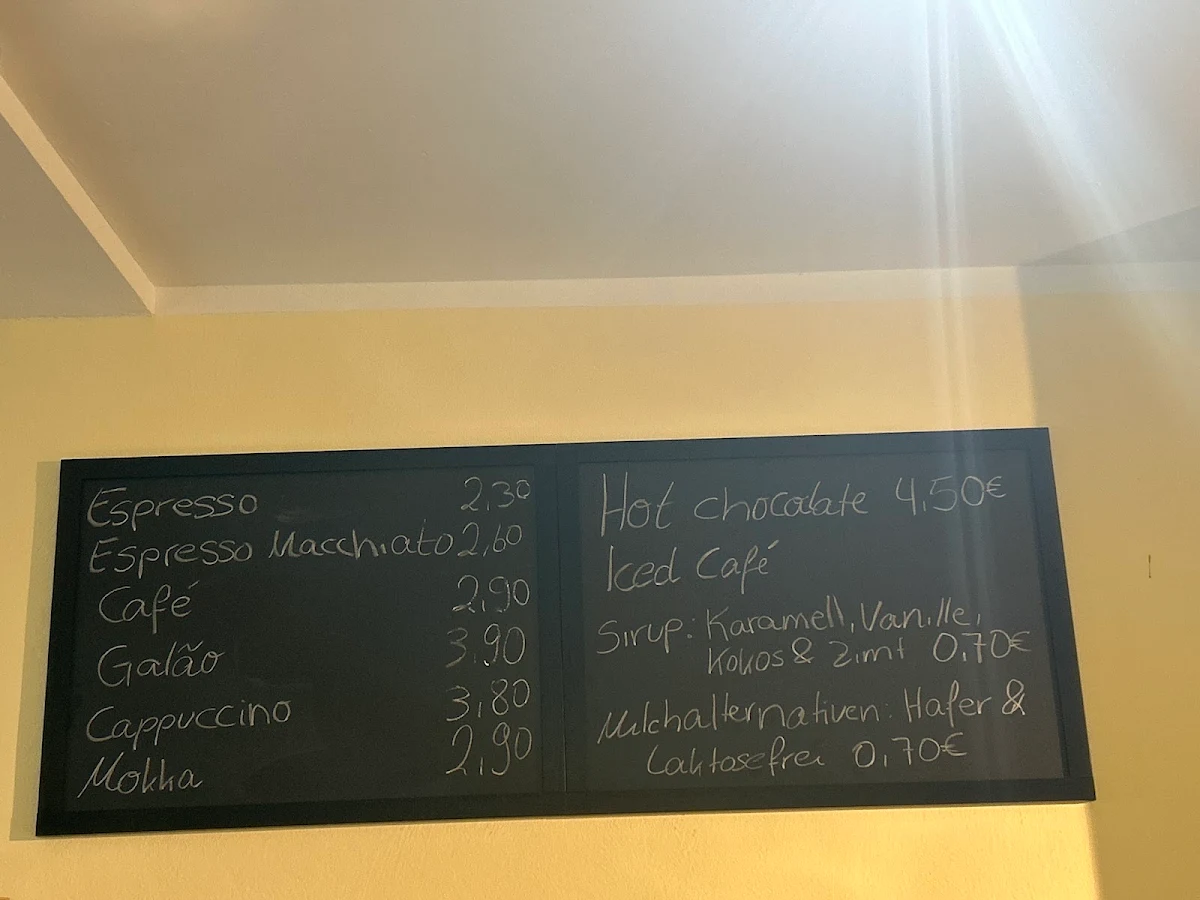 Espresso 2,30
Espresso Macchiato 2,60
Café 2,90
Galão 3,90
Cappuccino 3,80
Mokka 2,90
Hot chocolate 4,50€
Iced Café
Sirup: Karamell, Vanille,
Kokos & Zimt 0,70€
Milchalternativen: Hafer &
Laktosefrei 0,70€